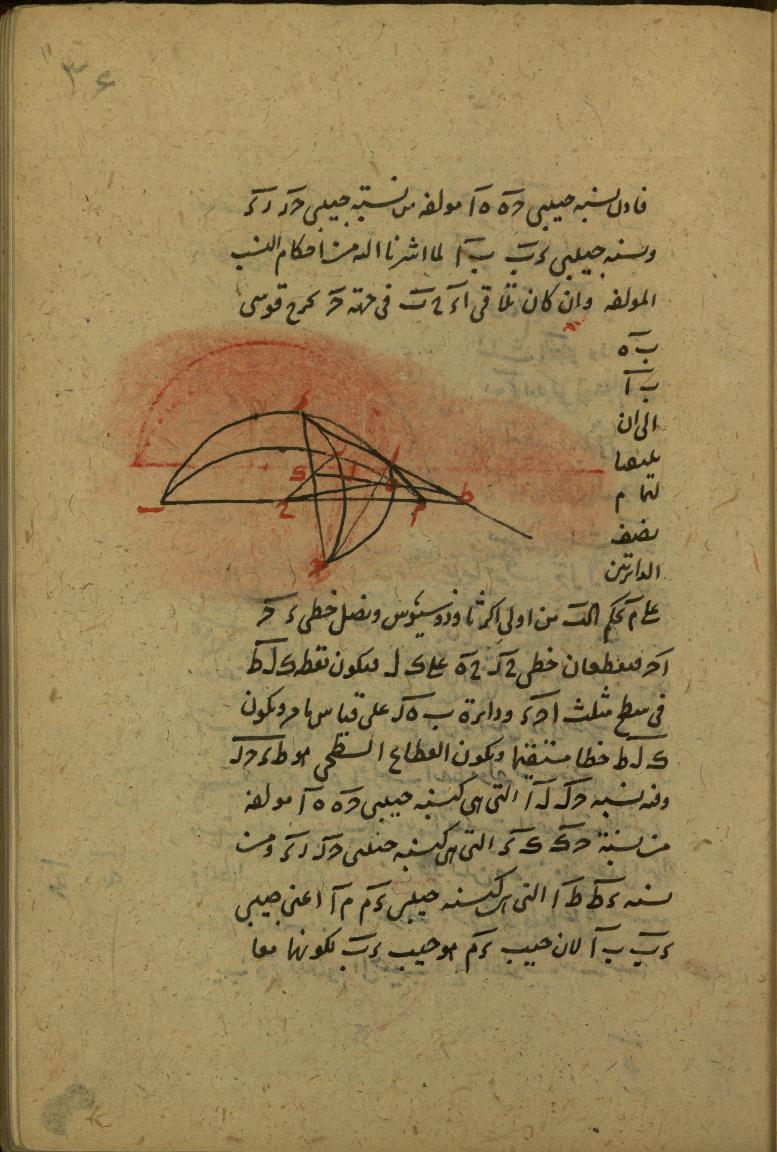 ٣٤
فاذن نسبة جيبي حه ه ا مولفه من نسبة جيبي حر ر ء
ونسبه جيبي ء ب ب ا لما اشرنا اليه من احكام النسب
المولفه وان كان تلاقى ا ء ح ب فى جهة ح نخرج قوسى
ب ه
ب ا
الى ان
يلتقيا
لهما م
نصف
الدائرتين
على م بحكم من اولى اكر ثاوذوسيوس ونصل خطى ء ح
ا ح فيقطعان خطى ح ر ح ه على ك ل فيكون نقط ك ل ط
فى سطح مثلث ا ح ء ودائرة ب ه ر على قياس ما مر ويكون
ك ل ط خطا مستقيما ويكون القطاع السطحى هو ط ء ح ل
وفيه نسبه ح ل ل ا التى هى كنسبه جيبى ح ه ه ا مولفه
من نسبة ح ك ك ء التى هى كنسبه جيبى ح ر ر ء ومن
نسبه ء ط ط ا التى هى كنسبه جيبى ء م م ا اعنى جيبى
ء ب ب ا لان جيب ء م هو جيب ء ب لكونهما معا